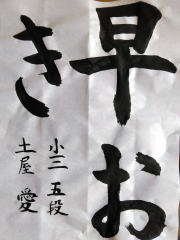 早お
き
小三 五段
土屋 愛